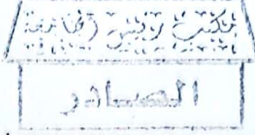 مكتب رئيس الجامعة
الصادر